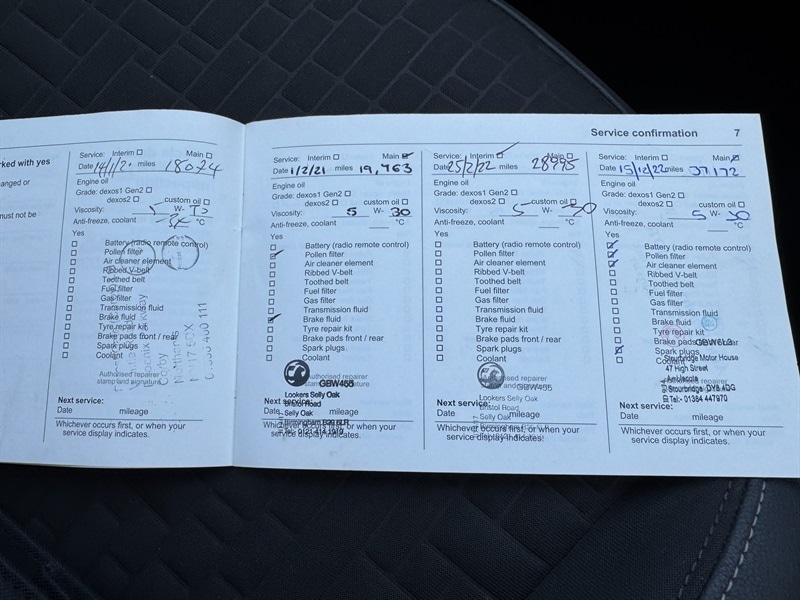 rked with yes
anged or
must not be
Service: Interim Main
Date 14/1/2 miles 18074
Engine oil
Grade: dexos1 Gen2
dexos2 custom oil
Viscosity: 5 W-
Anti-freeze, coolant °C
Yes
Battery (radio remote control)
Pollen filter
Air cleaner element
Ribbed V-belt
Toothed belt
Fuel filter
Gas filter
Transmission fluid
Brake fluid
Tyre repair kit
Brake pads front / rear
Spark plugs
Coolant
Authorised repairer
stamp and signature
Corby
Northants
Next service:
Date mileage
Whichever occurs first, or when your
service display indicates.
Service confirmation 7
Service: Interim Main
Date 1/2/21 miles 19,763
Engine oil
Grade: dexos1 Gen2
dexos2 custom oil
Viscosity: 5 W- 30
Anti-freeze, coolant °C
Yes
Battery (radio remote control)
Pollen filter
Air cleaner element
Ribbed V-belt
Toothed belt
Fuel filter
Gas filter
Transmission fluid
Brake fluid
Tyre repair kit
Brake pads front / rear
Spark plugs
Coolant
Authorised repairer
stamp and signature
GBW455
Lookers Selly Oak
Bristol Road
Selly Oak
Birmingham B29 6LR
Tel: 0121 414 1919
Next service:
Date mileage
Whichever occurs first, or when your
service display indicates.
Service: Interim Main
Date 25/2/22 miles 28995
Engine oil
Grade: dexos1 Gen2
dexos2 custom oil
Viscosity: 5 W- 30
Anti-freeze, coolant °C
Yes
Battery (radio remote control)
Pollen filter
Air cleaner element
Ribbed V-belt
Toothed belt
Fuel filter
Gas filter
Transmission fluid
Brake fluid
Tyre repair kit
Brake pads front / rear
Spark plugs
Coolant
Authorised repairer
stamp and signature
GBW455
Lookers Selly Oak
Bristol Road
Selly Oak
Next service:
Date mileage
Whichever occurs first, or when your
service display indicates.
Service: Interim Main
Date 15/12/22 miles 37,172
Engine oil
Grade: dexos1 Gen2
dexos2 custom oil
Viscosity: 5 W- 30
Anti-freeze, coolant °C
Yes
Battery (radio remote control)
Pollen filter
Air cleaner element
Ribbed V-belt
Toothed belt
Fuel filter
Gas filter
Transmission fluid
Brake fluid
Tyre repair kit
Brake pads
Spark plugs
Coolant
Stourbridge Motor House
47 High Street
Amblecote
Stourbridge DY8 4DG
Tel:- 01384 447970
Next service:
Date mileage
Whichever occurs first, or when your
service display indicates.